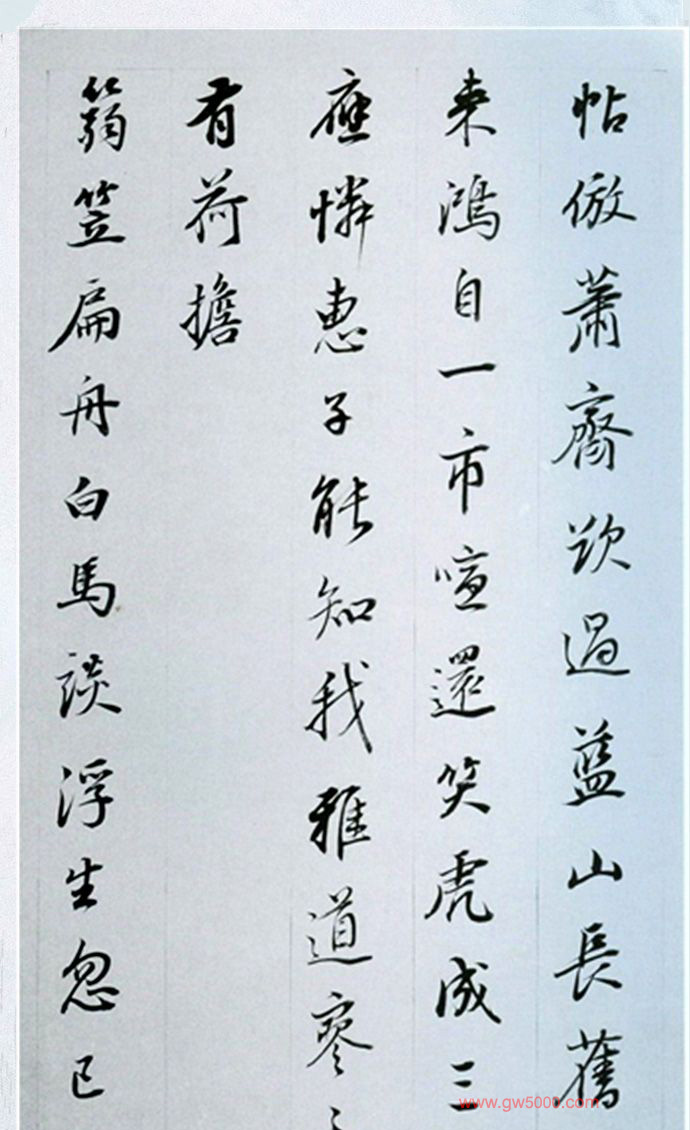 帖倣蕭齋欵過藍山長舊
来鴻自一市喧還笑虎成三
應憐惠子能知我雅道寥
有荷擔
篛笠扁舟白馬談浮生忽已
www.gw5000.com